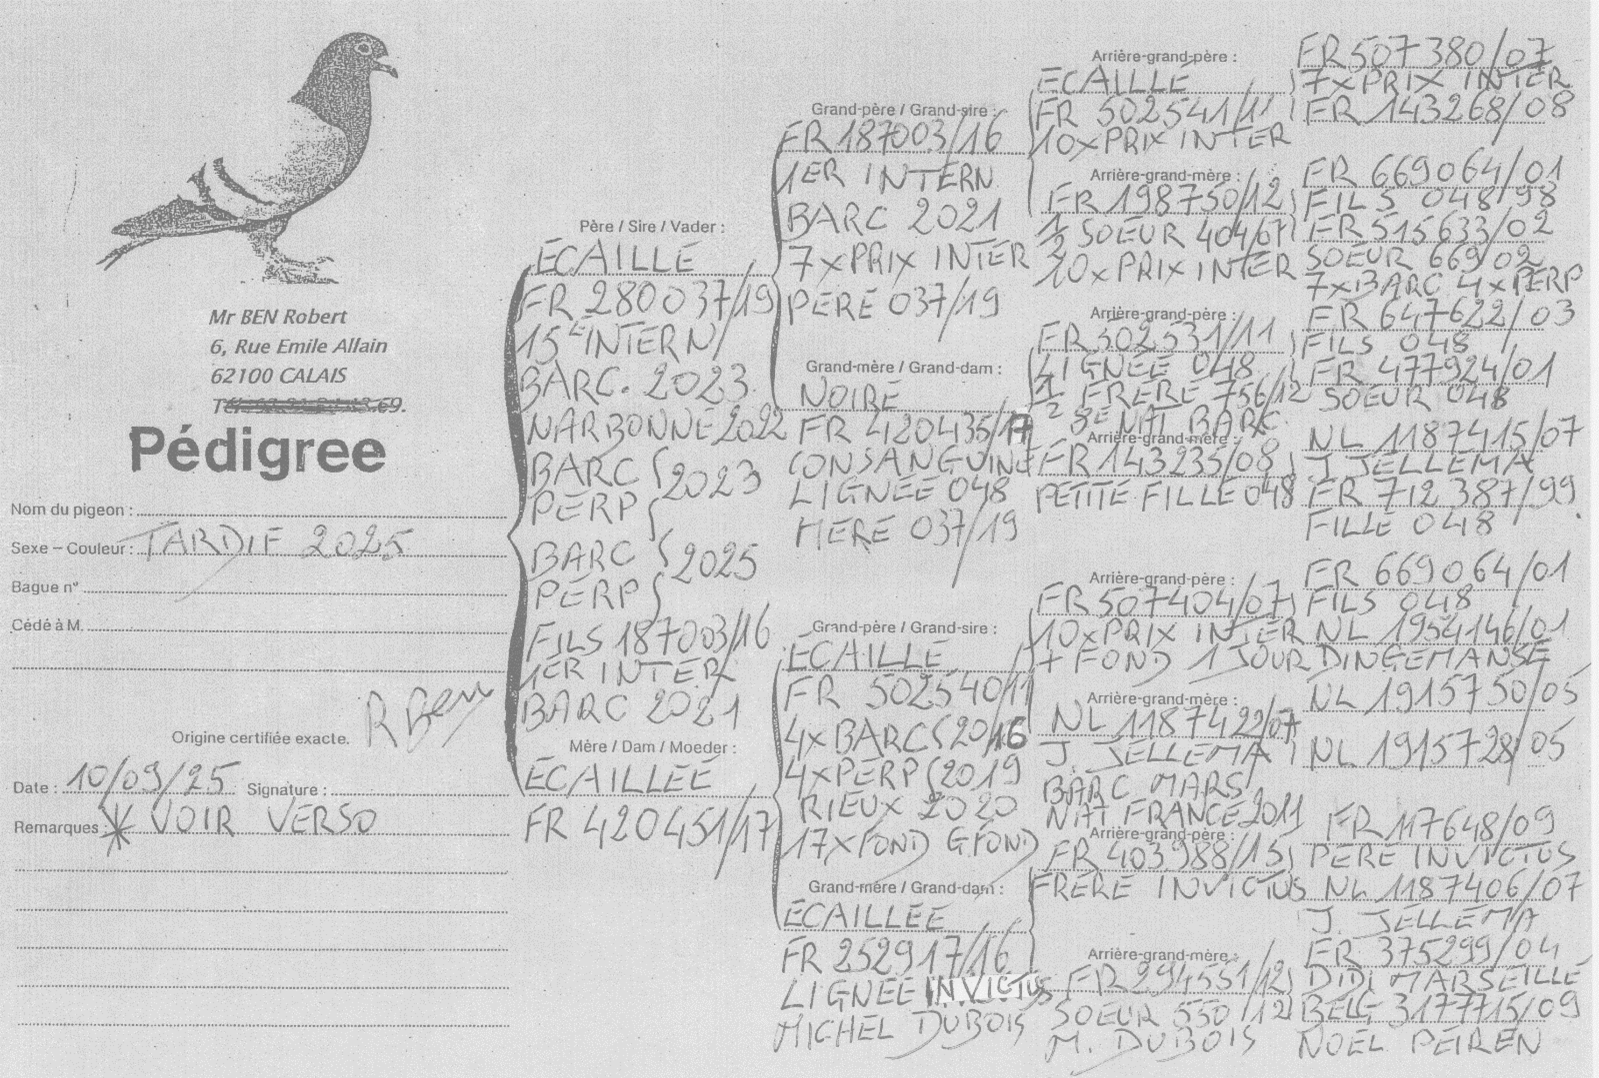 Mr BEN Robert
6, Rue Emile Allain
62100 CALAIS
Pédigree
Nom du pigeon :
Sexe – Couleur : TARDIF 2025
Bague n°
Cédé à M.
R Ben
Origine certifiée exacte.
Date : 10/09/25 Signature :
Remarques : * VOIR VERSO
Père / Sire / Vader :
ÉCAILLÉ
FR 280037/19
15E INTERN/
BARC. 2023
NARBONNE 2022
BARC } 2023
PERP
BARC } 2025
PERP
FILS 187003/16
1ER INTER
BARC 2021
Mère / Dam / Moeder :
ÉCAILLÉE
FR 420451/17
Grand-père / Grand-sire :
FR 187003/16
1ER INTERN
BARC 2021
7xPRIX INTER
PÈRE 037/19
Grand-mère / Grand-dam :
NOIRE
FR 420435/17
CONSANGUINE
LIGNÉE 048
MÈRE 037/19
Grand-père / Grand-sire :
ÉCAILLÉ
FR 502540/11
4xBARC { 2016
4xPERP { 2019
RIEUX 2020
17xFOND G.FOND
Grand-mère / Grand-dam :
ÉCAILLÉE
FR 252917/16
LIGNÉE INVICTUS
MICHEL DUBOIS
Arrière-grand-père :
ÉCAILLÉ
FR 502541/11
10xPRIX INTER
Arrière-grand-mère :
FR 198750/12
1/2 SOEUR 404/07
10xPRIX INTER
Arrière-grand-père :
FR 502531/11
LIGNÉE 048
1/2 FRÈRE 756/12
3E NAT BARC
Arrière-grand-mère :
FR 143235/08
PETITE FILLE 048
Arrière-grand-père :
FR 507404/07
10xPRIX INTER
+ FOND 1 JOUR
Arrière-grand-mère :
NL 1187422/07
J. JELLEMA
BARC MARS
NAT FRANCE 2011
Arrière-grand-père :
FR 403988/15
FRÈRE INVICTUS
Arrière-grand-mère :
FR 294551/12
SOEUR 550/12
M. DUBOIS
FR 507380/07
7xPRIX INTER
FR 143268/08
FR 669064/01
FILS 048/98
FR 515633/02
SOEUR 669/02
7xBARC 4xPERP
FR 647622/03
FILS 048
FR 477924/01
SOEUR 048
NL 1187415/07
J. JELLEMA
FR 712387/99
FILLE 048
FR 669064/01
FILS 048
NL 1954146/01
DINGEMANSE
NL 1915750/05
NL 1915728/05
FR 117648/09
PÈRE INVICTUS
NL 1187406/07
J. JELLEMA
FR 375299/04
DIDI MARSEILLE
BELG 3177715/09
NOEL PEIREN